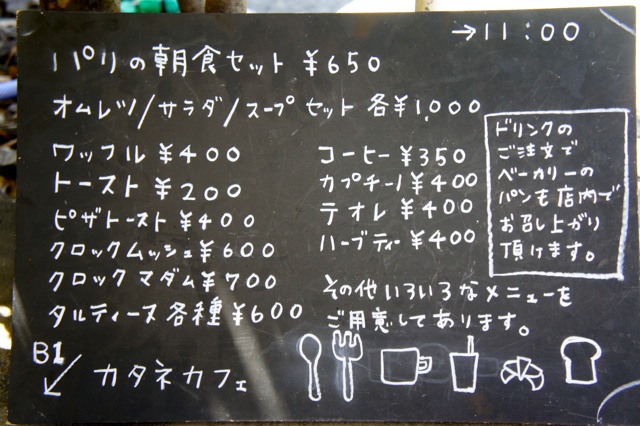 →11:00
パリの朝食セット ¥650
オムレツ/サラダ/スープセット 各¥1,000
ワッフル ¥400
トースト ¥200
ピザトースト ¥400
クロックムッシュ ¥600
クロックマダム ¥700
タルティーヌ各種 ¥600
コーヒー ¥350
カプチーノ ¥400
テオレ ¥400
ハーブティー ¥400
ドリンクの
ご注文で
ベーカリーの
パンも店内で
お召し上がり
頂けます。
その他いろいろなメニューを
ご用意してあります。
B1
カタネカフェ